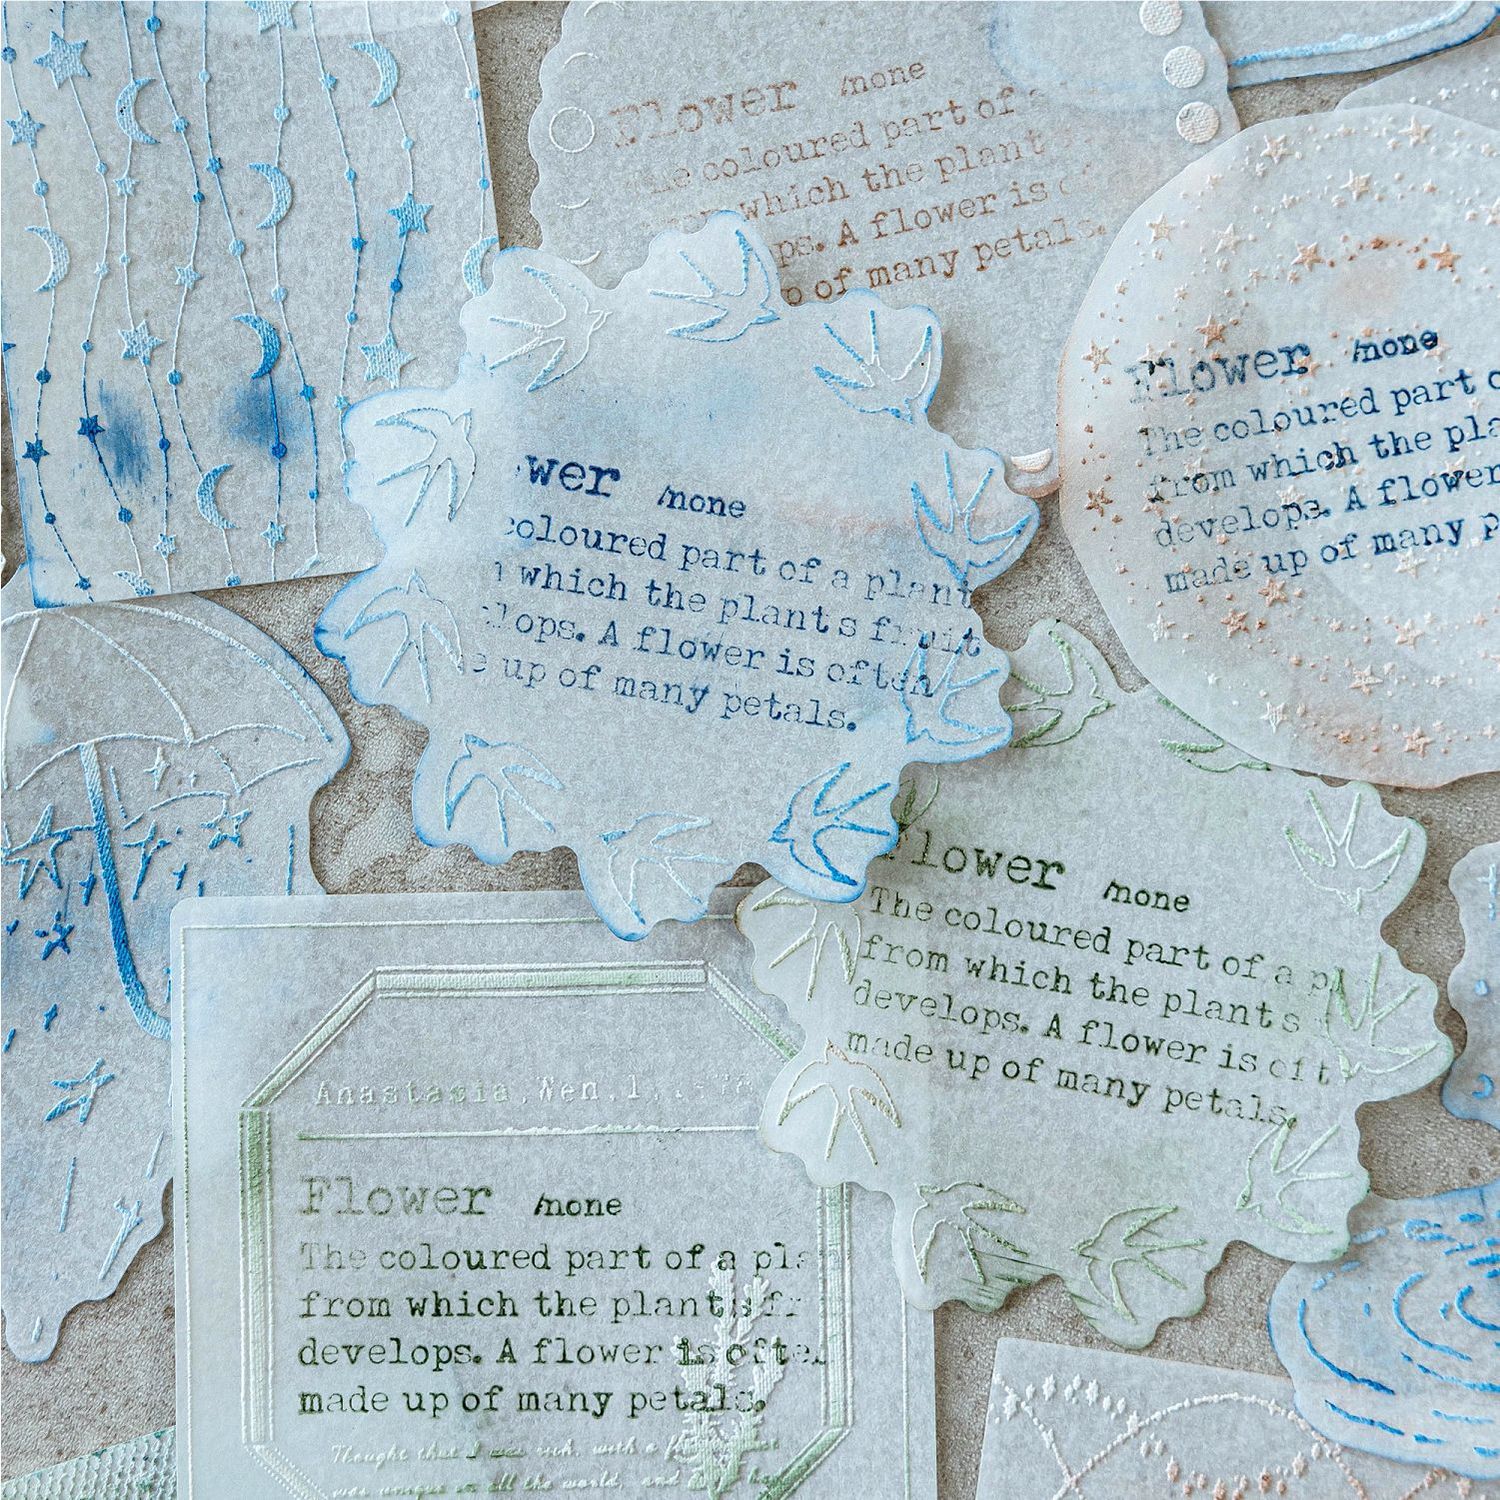 Flower /none
The coloured part of a
which the plant
ps. A flower is
p of many petals.
Flower /none
The coloured part o
from which the pla
develops. A flower
made up of many p
wer /none
coloured part of a plant
which the plants fruit
lops. A flower is often
e up of many petals.
Flower /none
The coloured part of a pl
from which the plants
develops. A flower is oft
made up of many petals.
Anastasia.Wen.1.
Flower /none
The coloured part of a plan
from which the plants fr
develops. A flower is often
made up of many petals.
Thought that I was rich, with a
was unique in all the world, and